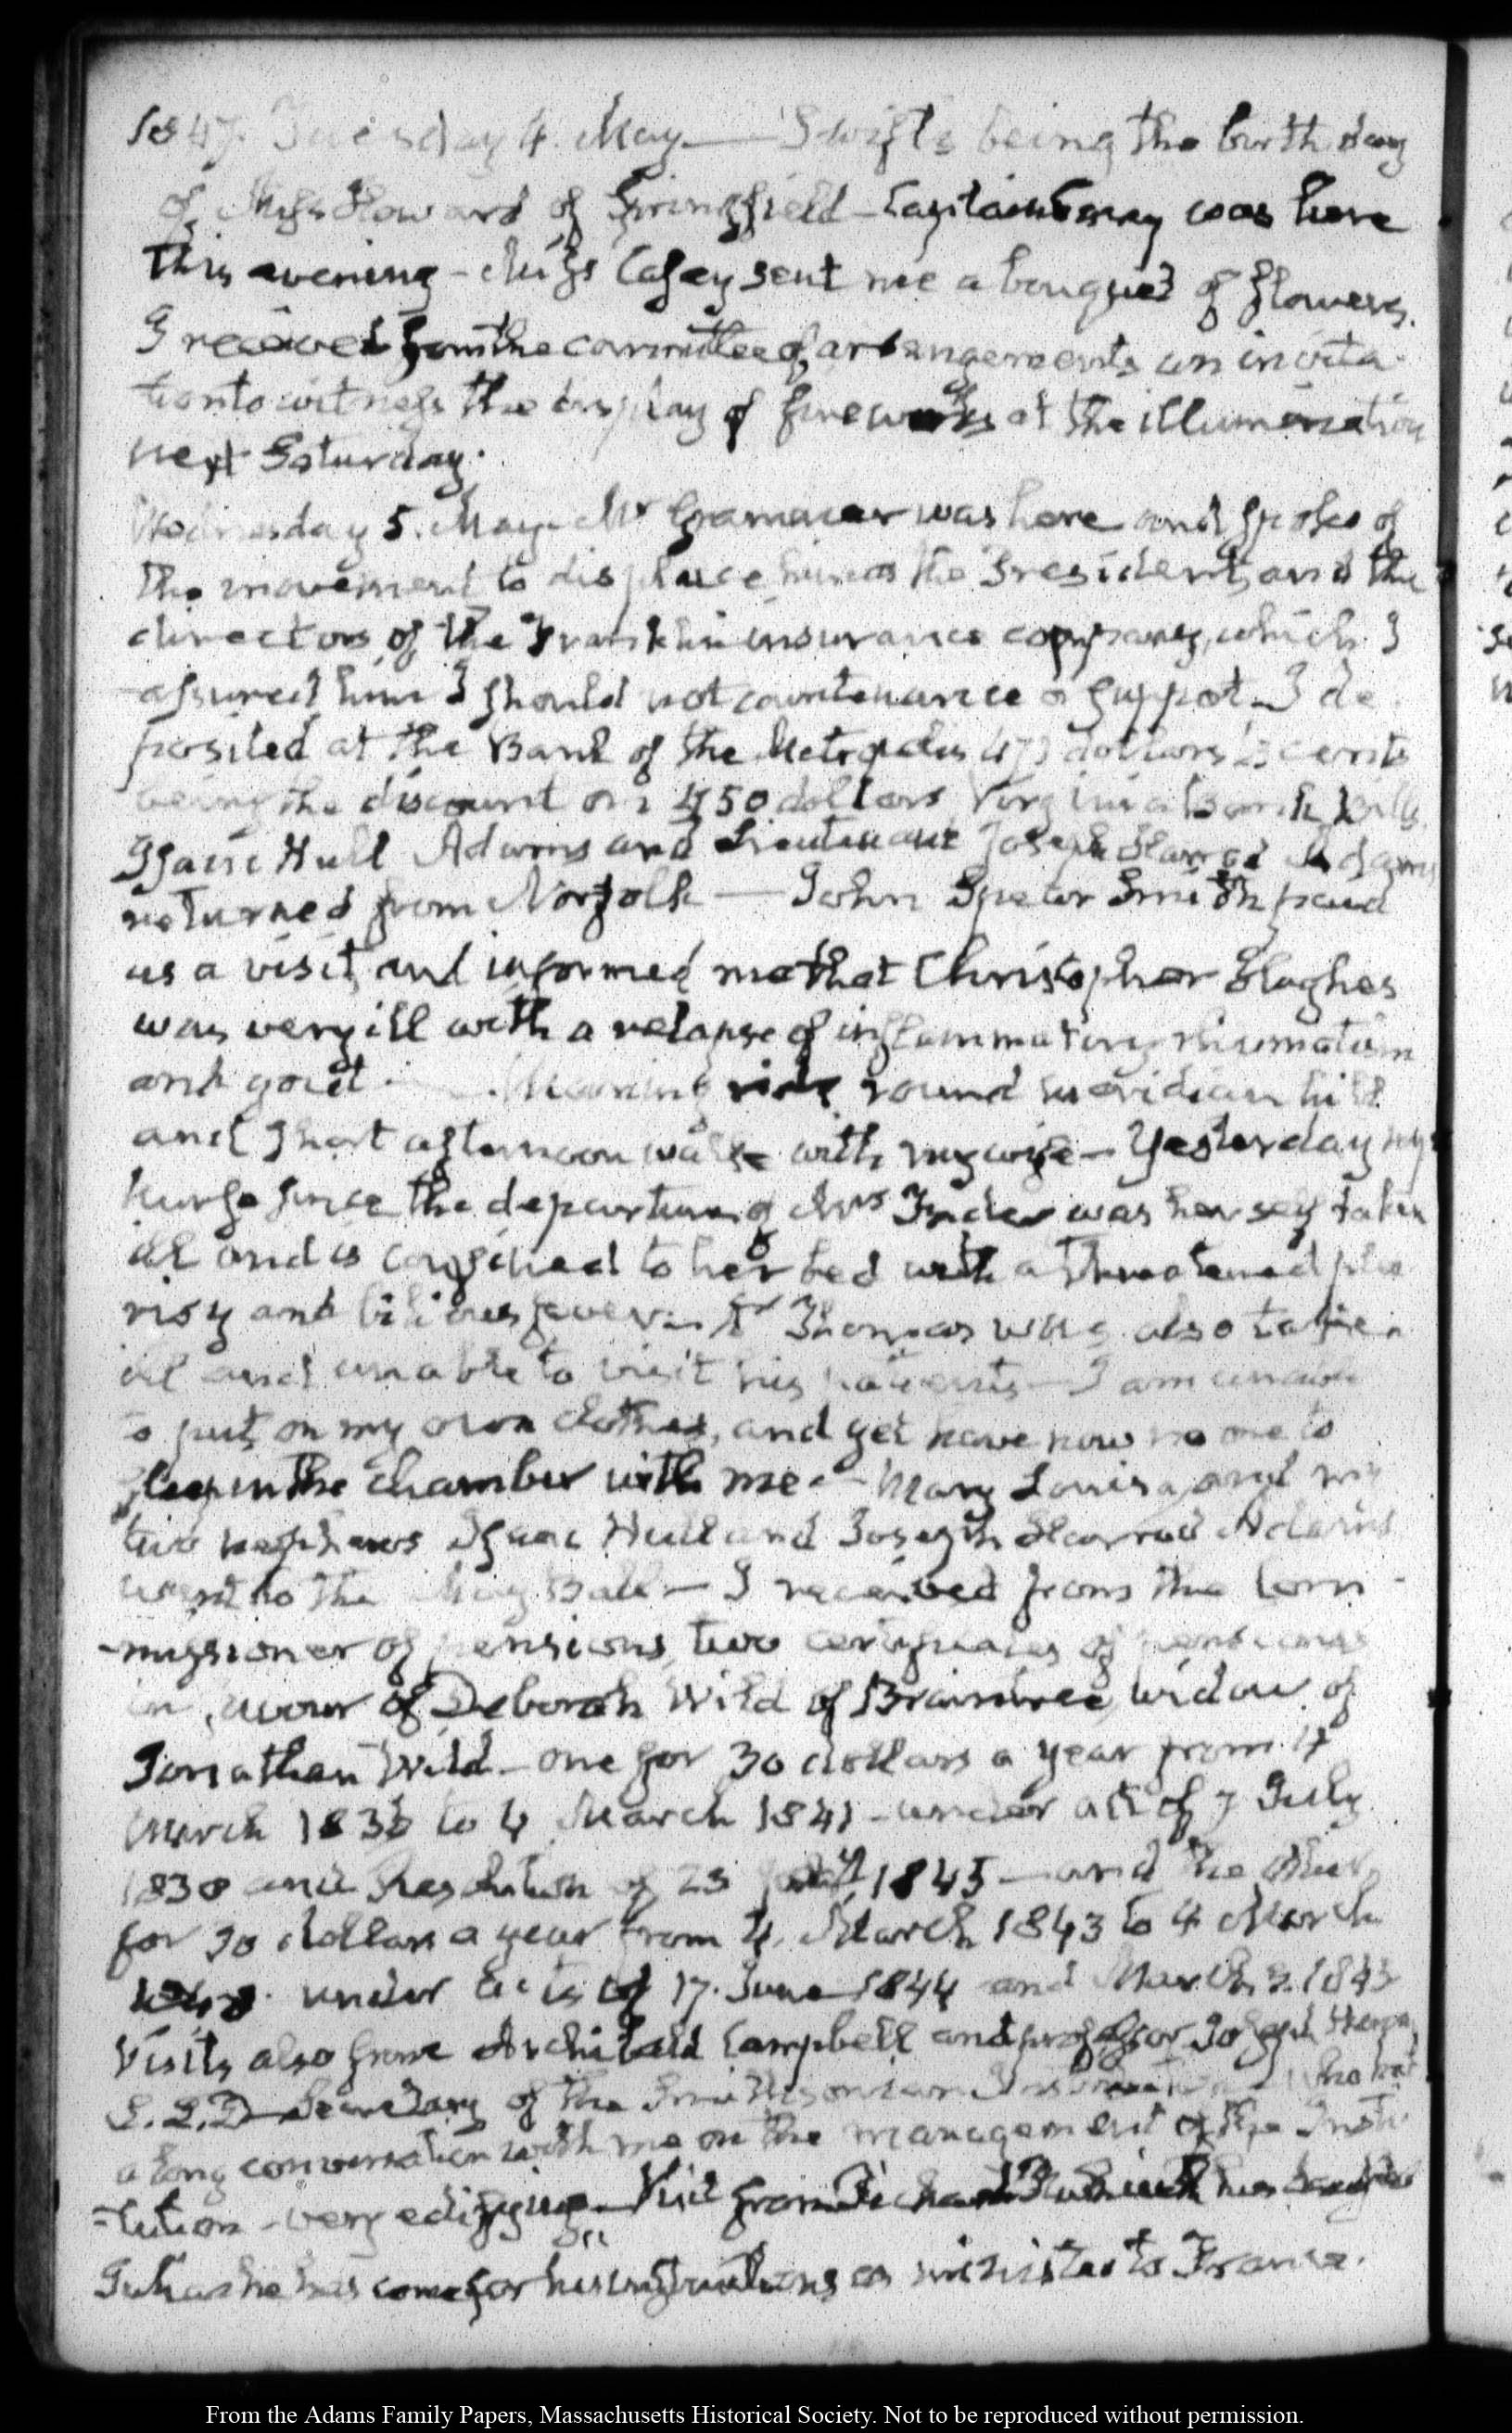 1847. Tuesday 4. May — Swifts being the birth day
of Miss Howard of Springfield — Captain was here
this evening — Miss Casey sent me a bouquet of flowers.
I received from the committee of arrangements an invita-
tion to witness the display of fireworks at the illumination
next Saturday.
Wednesday 5. May — Mr was here and spoke of
the movement to displace him as the President, and the
directors of the Franklin insurance company, which I
assured him I should not countenance or support. I de
posited at the Bank of the Metropolis dollars cents
being the discount on 450 dollars Virginia Bank bills.
Isaac Hull Adams and Lieutenant Joseph Harrod Adams
returned from Norfolk — John Spear Smith paid
us a visit, and informed me that Christopher Hughes
was very ill with a relapse of inflammatory rheumatism
and gout — Morning ride round meridian hill
and short afternoon walk with my wife — Yesterday my
nurse since the departure of Mrs was herself taken
ill and is confined to her bed with a threatened pleu
risy and bilious fever — Dr Thomas was also taken
ill and unable to visit his patients — I am unable
to put on my own clothes, and yet have now no one to
sleep in the chamber with me — Mary Louisa, and my
two nephews Isaac Hull and Joseph Harrod Adams
went to the May Ball — I received from the Com-
-missioner of pensions, two certificates of pensions
in favour of Deborah Wild of Braintree, widow of
Jonathan Wild — one for 30 dollars a year from 4
March 1836 to 4 March 1841 — under act of 7 July
1838 and Resolution of 23 1845 — and the other
for 30 dollars a year from 4. March 1843 to 4 March
1848. under Acts of 17. June 1844 and March 3. 1843
Visits also from Archibald Campbell and professor Joseph Henry
L.L.D — Secretary of the Smithsonian Institution — who had
a long conversation with me on the management of the Insti-
-tution — very edifying — Visit from Richard Rush with his daughter
Julia — he has come for his instructions as minister to France.
From the Adams Family Papers, Massachusetts Historical Society. Not to be reproduced without permission.